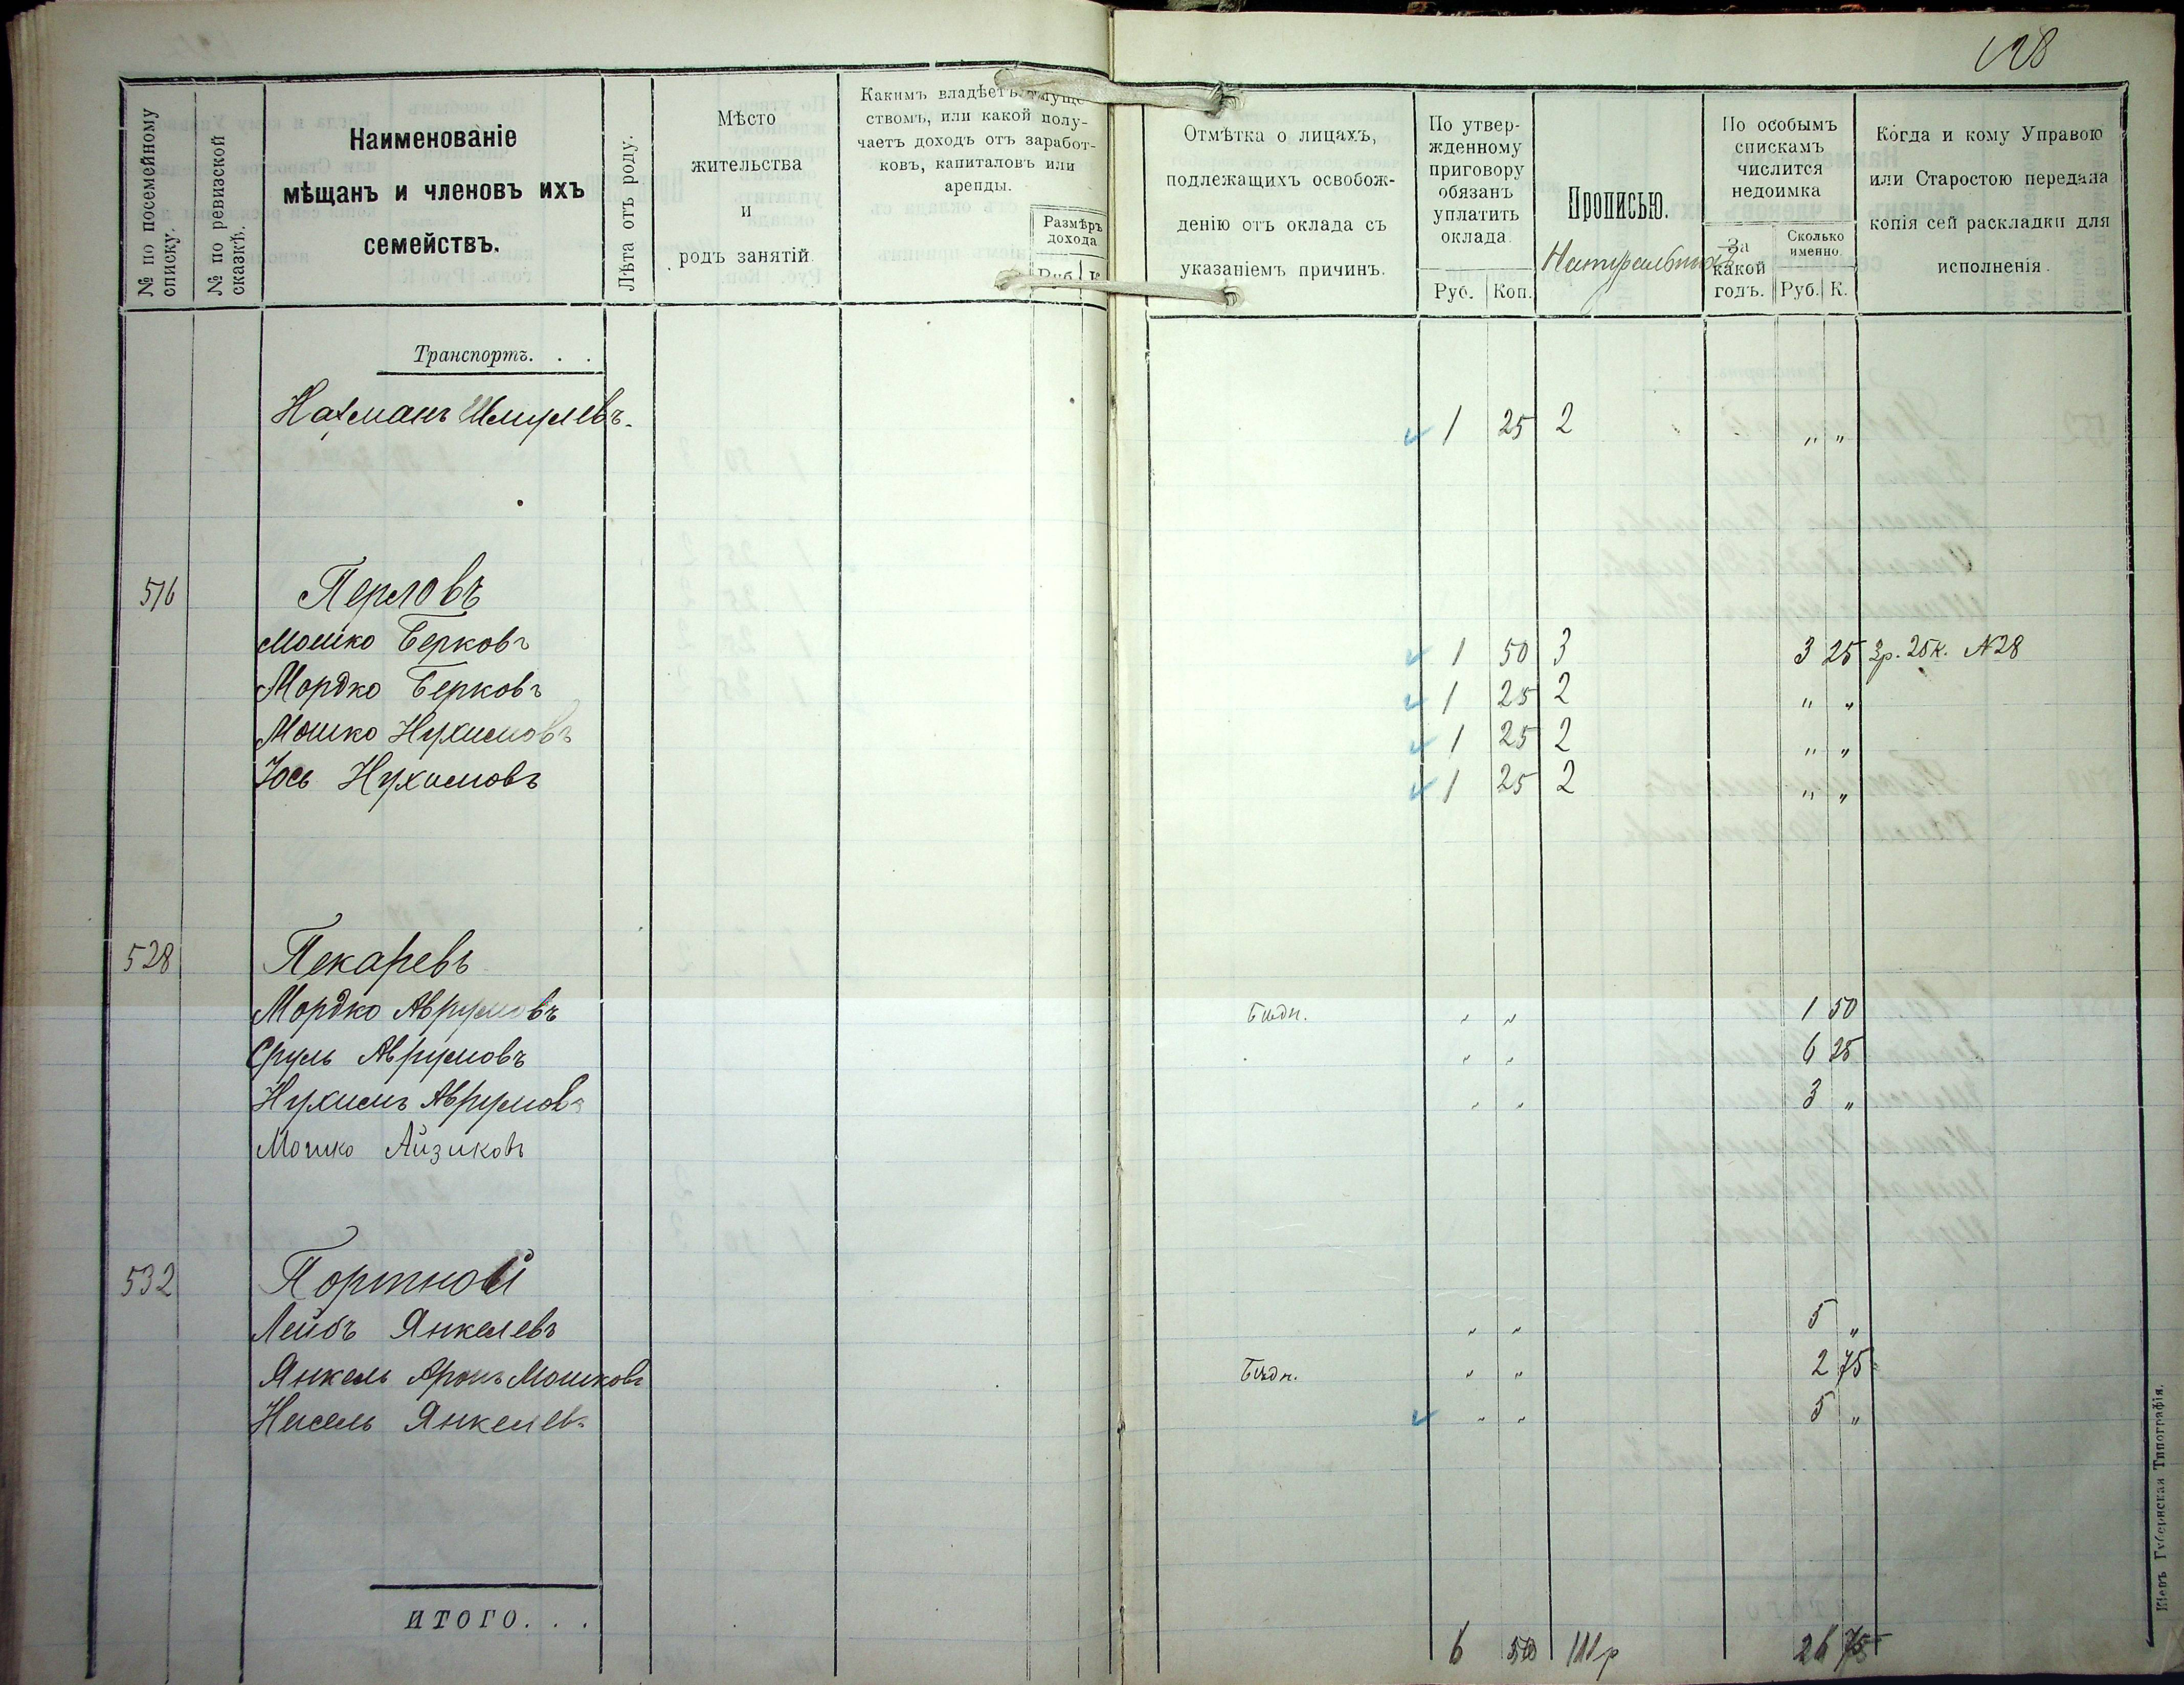 128
№ по посемейному списку.
№ по ревизской сказкѣ.
Наименованіе
мѣщанъ и членовъ ихъ
семействъ.
Лѣта отъ роду.
Мѣсто
жительства
и
родъ занятій
Какимъ владѣетъ имуще-
ствомъ, или какой полу-
чаетъ доходъ отъ заработ-
ковъ, капиталовъ или
аренды.
Размѣръ
дохода
Руб. К
Отмѣтка о лицахъ,
подлежащихъ освобож-
денію отъ оклада съ
указаніемъ причинъ.
По утвер-
жденному
приговору
обязанъ
уплатить
оклада.
Руб. Коп.
Прописью.
Натуральныхъ
По особымъ
спискамъ
числится
недоимка
За
какой
годъ.
Сколько
именно.
Руб. К.
Когда и кому Управою
или Старостою передана
копія сей раскладки для
исполненія.
Транспортъ. . .
Нахманъ Шмулевъ. 1 25 2 " "
516 Перловъ
Мошко Берковъ 1 50 3 3 25 3р. 25к. N28
Мордко Берковъ 1 25 2 " "
Мошко Нухимовъ 1 25 2 " "
Іось Нухимовъ 1 25 2 " "
528 Пекаревъ
Мордко Аврумовъ Бѣдн. " " 1 50
Сруль Аврумовъ " " 6 25
Нухимъ Аврумовъ " " 3 "
Мошко Айзиковъ
532 Портной
Лейбъ Янкелевъ " " 5 "
Янкель Аронъ Мошковъ Бѣдн. " " 2 75
Нисель Янкелевъ " " 5 "
ИТОГО. . . 6 50 26 75
Кіевъ Губернская Типографія.